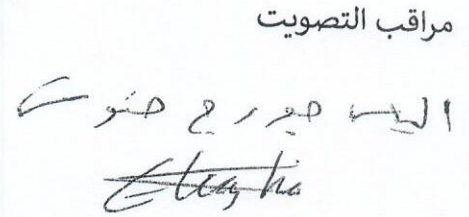 مراقب التصويت
الياس جورج حنوش